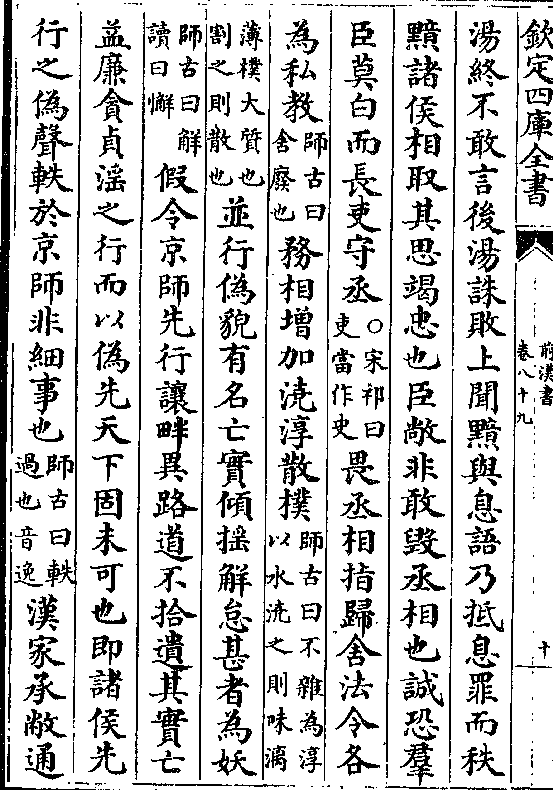 欽定四庫全書
前漢書
卷八十九
十
湯終不敢言後湯誅敗上聞黯與息語乃抵息罪而秩
黯諸侯相取其思竭忠也臣敞非敢毀丞相也誠恐羣
臣莫白而長吏守丞○宋祁曰吏當作史畏丞相指歸舍法令各
為私教師古曰舍廢也務相增加澆淳散樸師古曰不雜為淳以水澆之則味漓
薄樸大質也割之則散也並行偽貌有名亡實傾揺解怠甚者為妖
師古曰解讀曰懈假令京師先行讓畔異路道不拾遺其實亡
益亷貪貞滛之行而以偽先天下固未可也即諸侯先
行之偽聲軼於京師非細事也師古曰軼過也音逸漢家承敝通